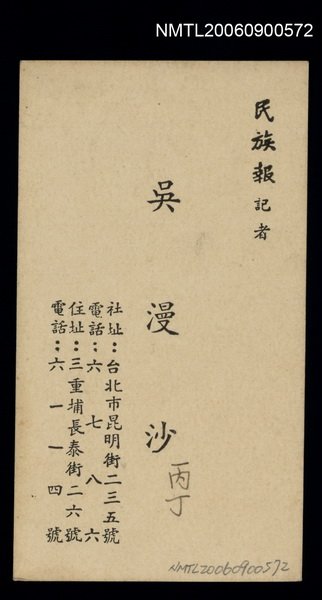 NMTL20060900572
民族報記者
吳漫沙
丙丁
社址：台北市昆明街二三五號
電話：六七八六
住址：三重埔長泰街二六號
電話：六一一四號
NMTL20060900572